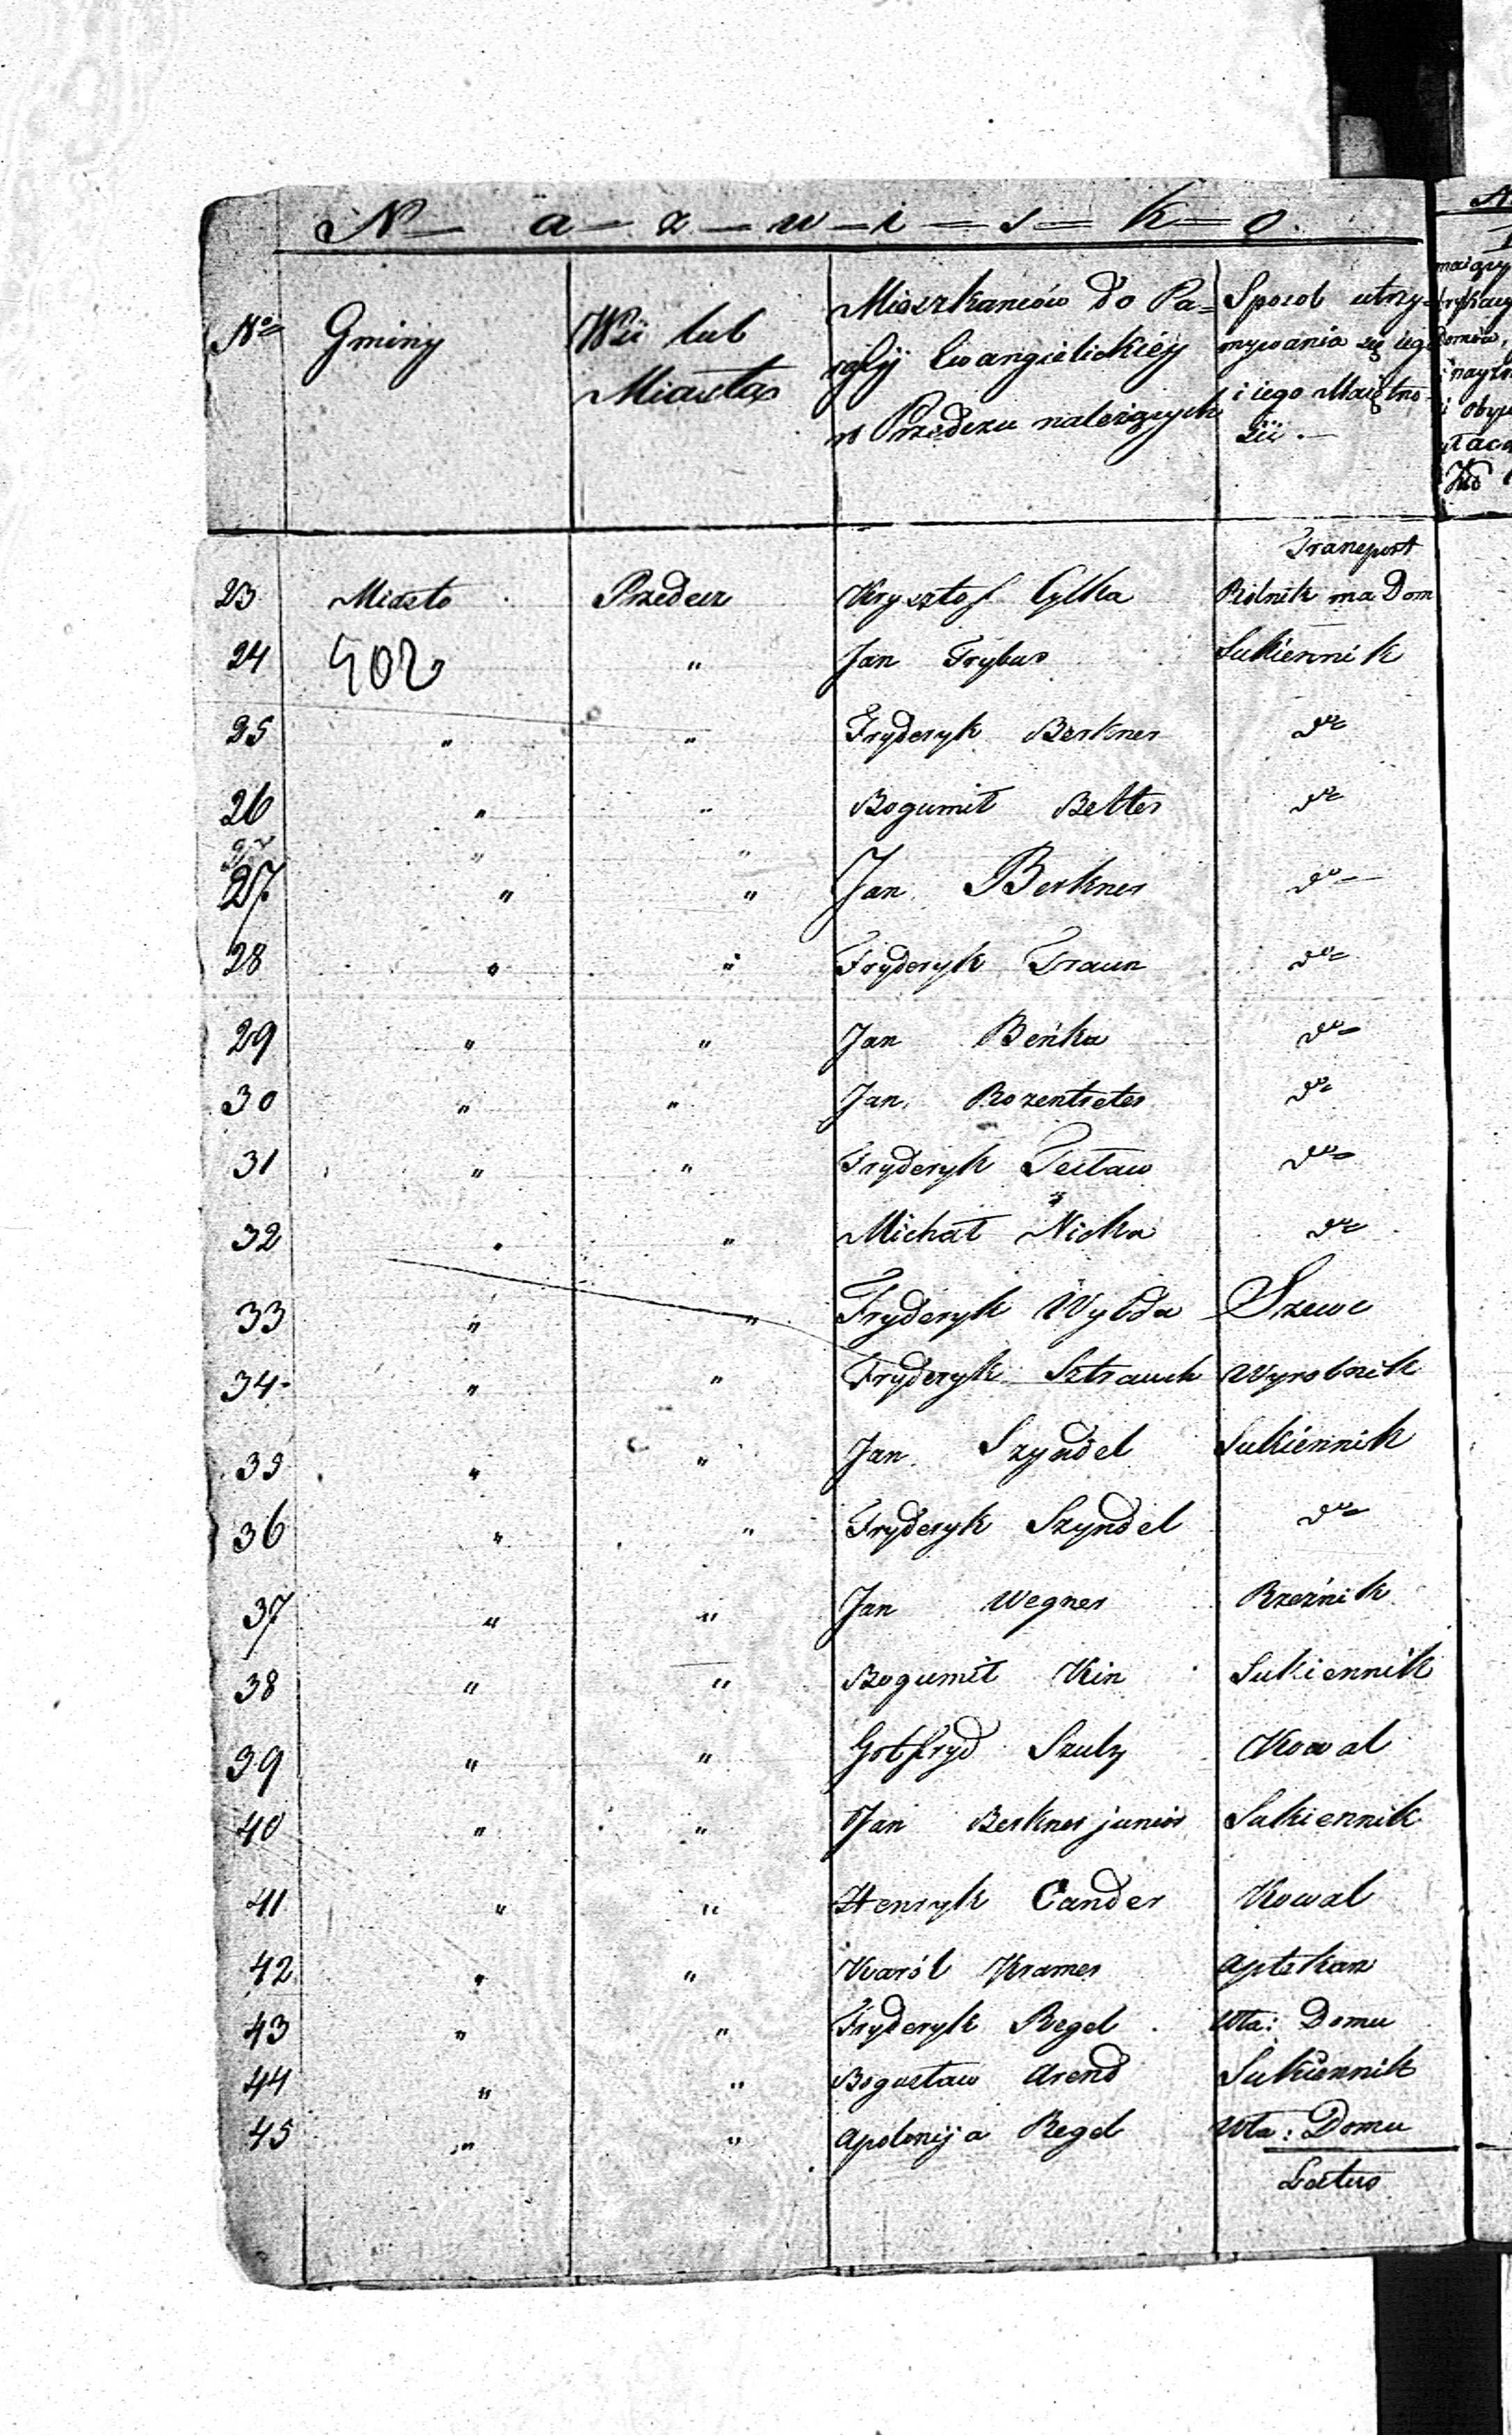 N — a — z — w — i — s — k — o.
No Gminy Wsi lub Miasta Mieszkańców do Pa= Sposob utrzy=
rafij Ewangielickiéy mywania się iego
w Przedczu należących i iego Maiętno=
ści. —
Transport
23 Miasto Przedecz Krysztof Cylka Rolnik ma Dom
24 402 " Jan Trybus Sukiennik
25 " " Fryderyk Berkner do
26 " " Bogumił Belter do
27 " " Jan Berkner do
28 " " Fryderyk Traun do
29 " " Jan Beńka do
30 " " Jan Rozentreter do
31 " " Fryderyk do
32 " " Michał Nicka do
33 " " Fryderyk Wylda Szewc
34 " " Fryderyk Sztrauch Wyrobnik
35 " " Jan Szyndel Sukiennik
36 " " Fryderyk Szyndel do
37 " " Jan Wegner Rzeźnik
38 " " Bogumił Kin Sukiennik
39 " " Gotfryd Szulz Kowal
40 " " Jan Berkner junior Sukiennik
41 " " Henryk Cander Kowal
42 " " Karól Kramer Aptekarz
43 " " Fryderyk Regel Wła: Domu
44 " " Bogusław Arend Sukiennik
45 " " Apolonija Regel Wła: Domu
Latus